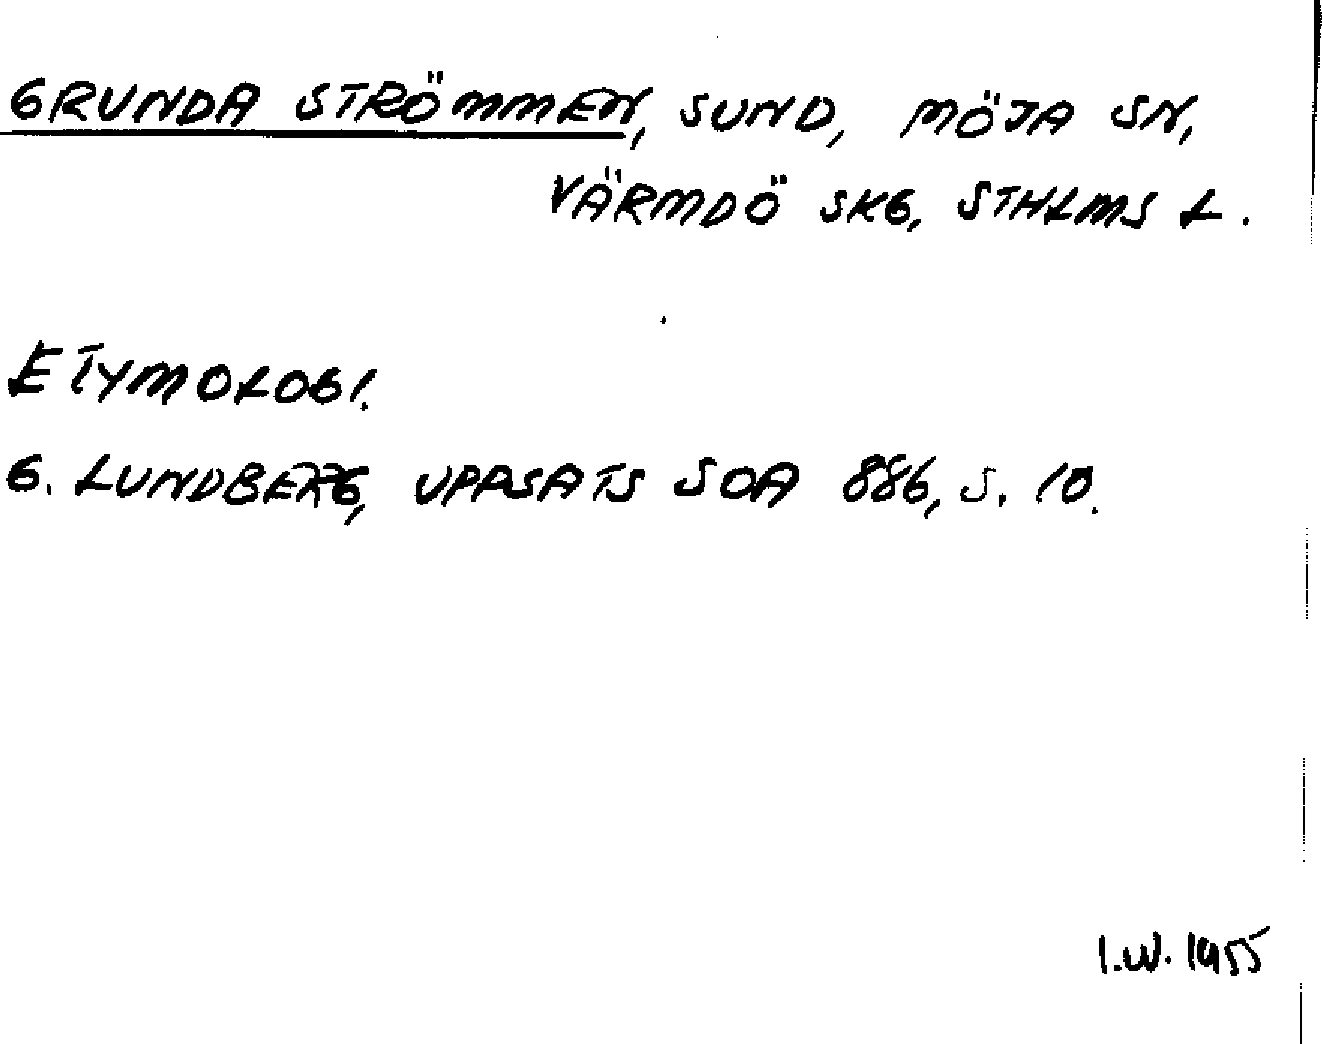 GRUNDA STRÖMMEN, SUND, MÖJA SN,
VÄRMDÖ SKG, STHLMS L.
ETYMOLOGI.
G. LUNDBERG, UPPSATS SOA 886, S. 10.
I.W. 1955